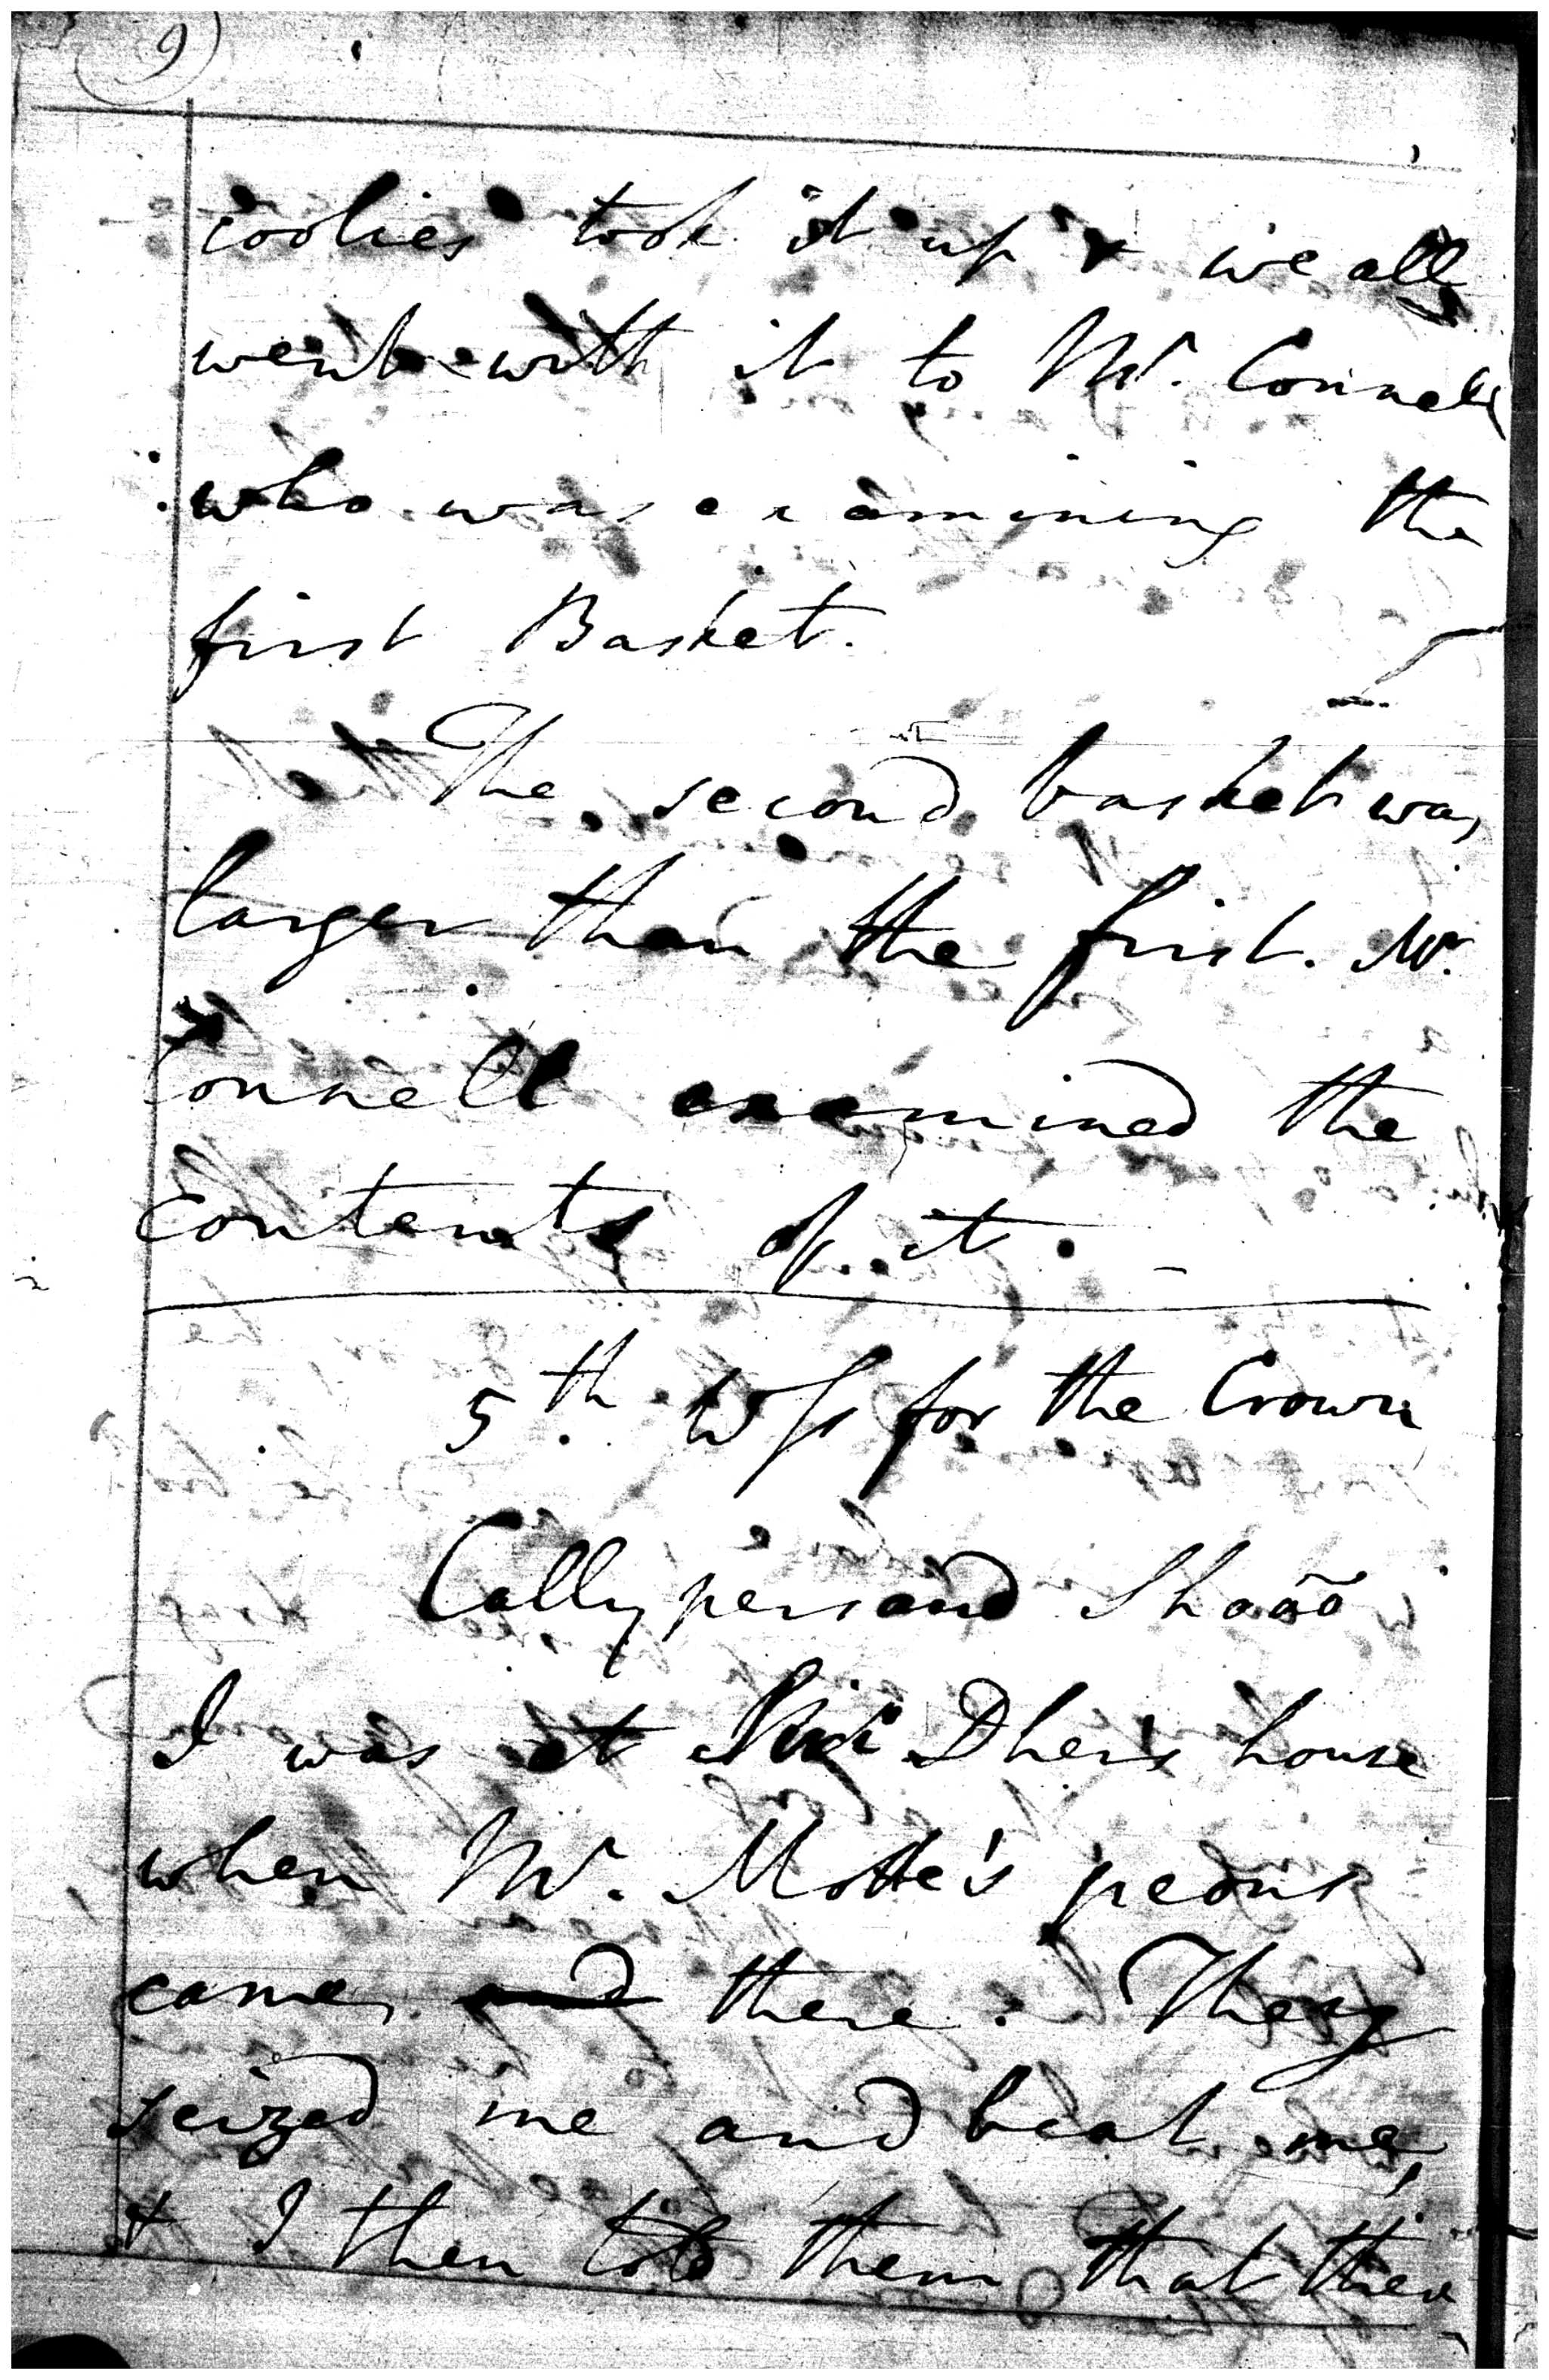 9
coolies took it up & we all
went with it to Mr. Connell
who was examining the
first Basket.
The second basket was
larger than the first. Mr.
Connell examined the
Contents of it.
5th. Wss for the Crown
Callypersaud Shaoo
I was at Dher's house
when Mr. Motte's peons
came, and there. They
seized me and beat me,
& I then told them that there